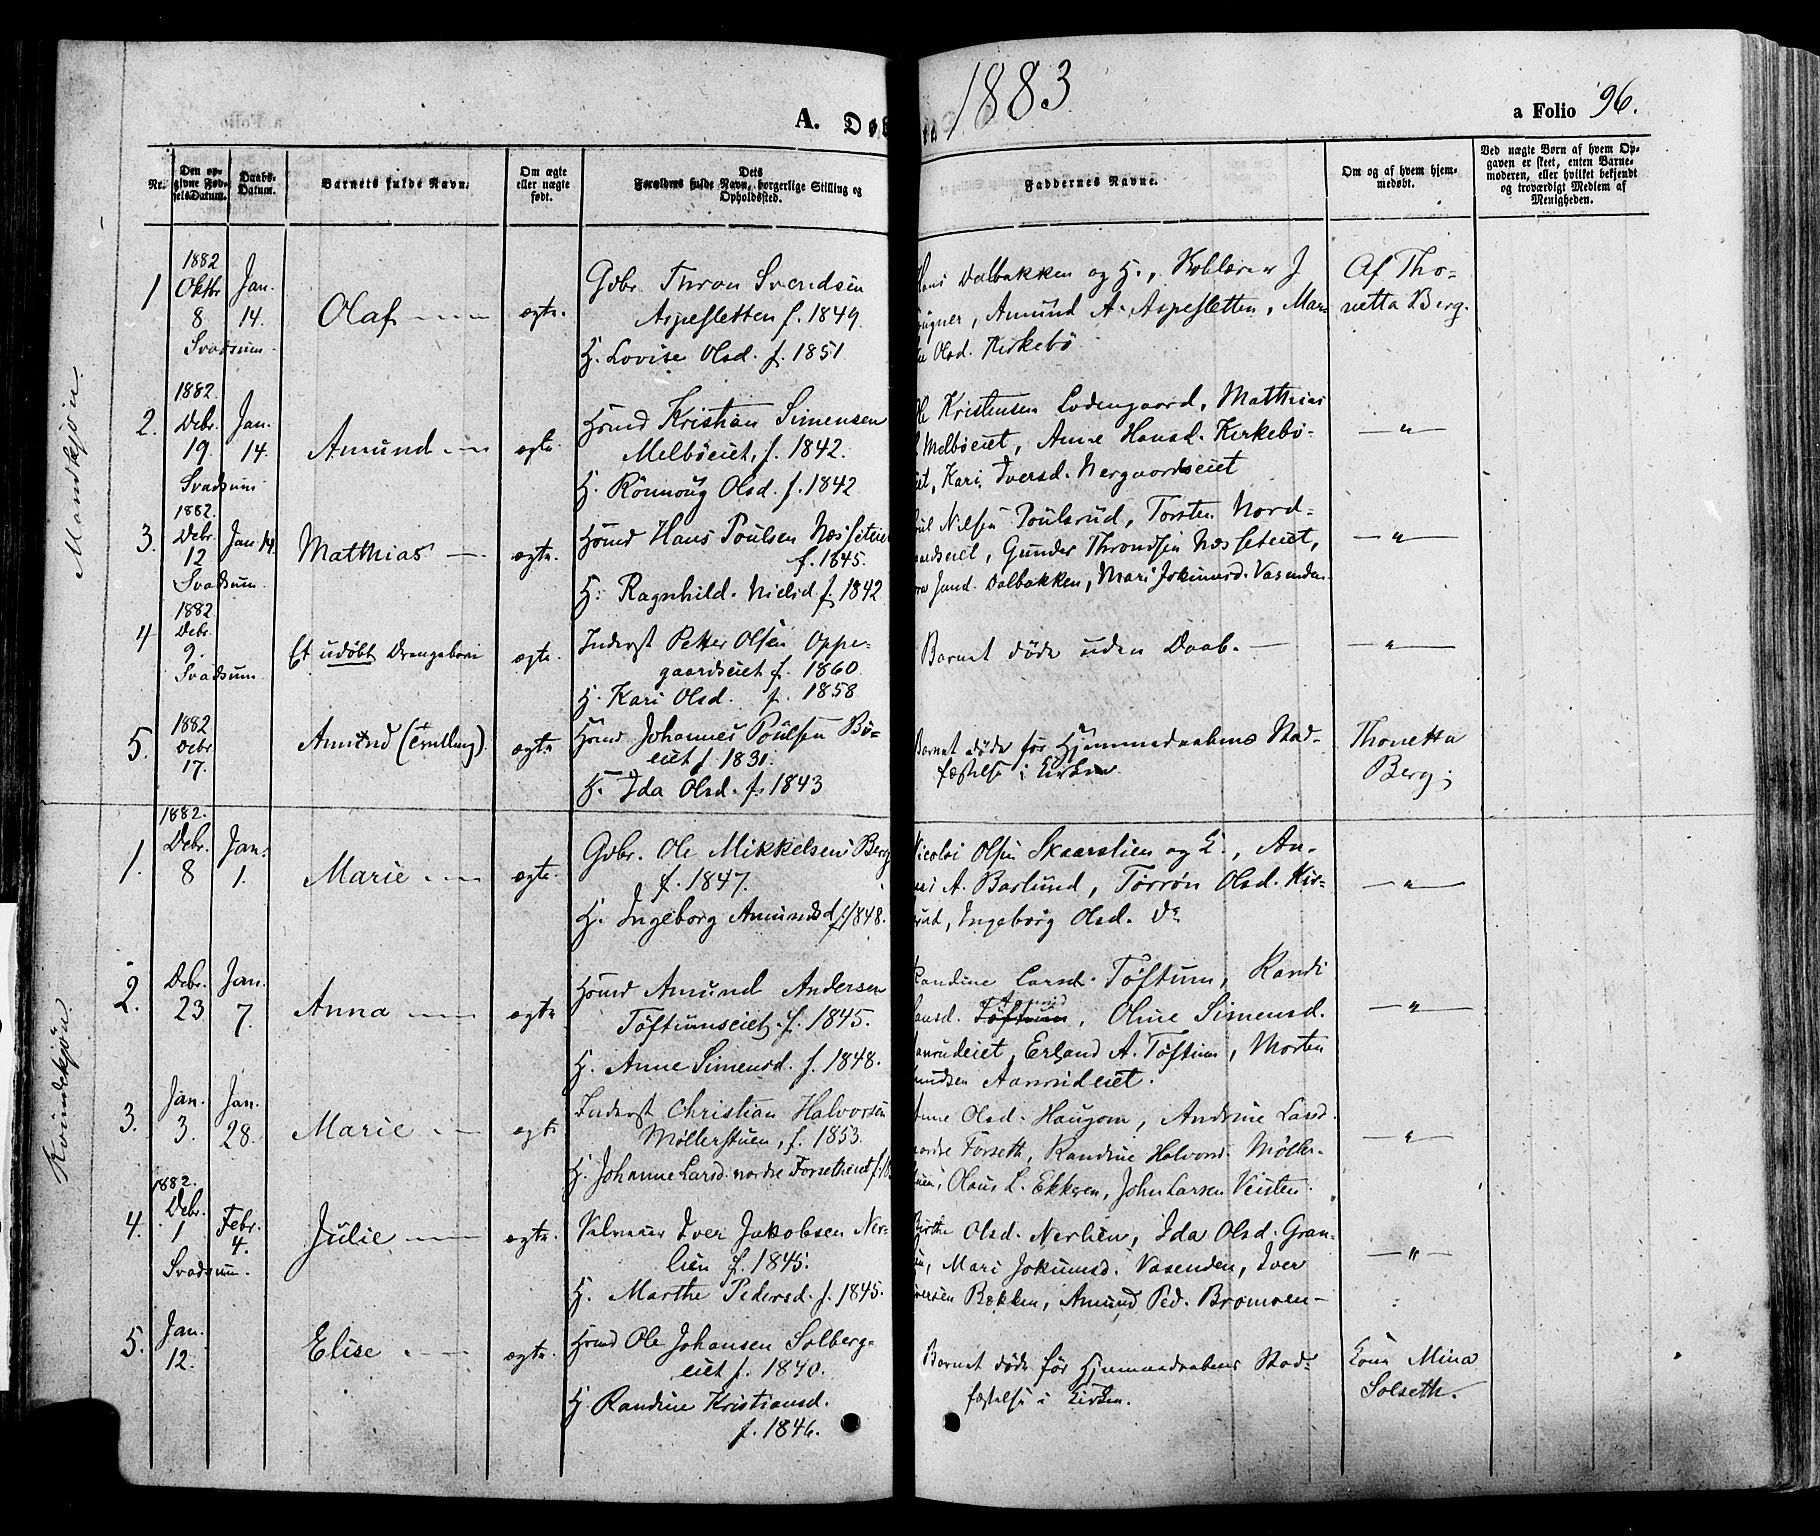 1883
A. Døb
a Folio 96.
Nr.
Den opgivne FødselsDatum.
DaabsDatum.
Barnets fulde Navn.
Om ægte eller nægte født.
Dets Forældres fulde Navn, borgerlige Stilling og Opholdssted.
Faddernes Navne.
Om og af hvem hjemmedøbt.
Ved nægte Børn af hvem Opgaven er skeet, enten Barnemoderen, eller hvilket bekjendt og troværdigt Medlem af Menigheden.
Mandkjön.
1
1882
Oktbr
8
Svadsum
Jan.
14.
Olaf
ægte.
Gdbr. Thron Svendsen
Aspesletten f. 1849.
H. Lovise Olsd. f. 1851
Hans Dalbakken og H., J
Amund A. Aspesletten, Mar-
Olsd. Kirkebö
Af Tho-
netta Berg.
2.
1882.
Debr.
19.
Svadsum
Jan.
14.
Amund
ægte.
Hsmd Kristian Simensen
Melböeiet, f. 1842.
H. Rönnoug Olsd. f. 1842
Ole Kristensen Lodengaard, Matthias
Melböeiet, Anne Hansd. Kirkebö-
eiet, Kari Iversd. Nergaardseiet
— " —
3.
1882.
Debr.
12
Svadsum
Jan. 14.
Matthias
ægte.
Hsmd Hans Poulsen Næsseteiet
f. 1845.
H. Ragnhild Nielsd f. 1842
Nilsen Poulsrud, Torsten Nord-
Gunder Throndsen Næsseteiet,
Dalbakken, Mari Jokumsd. Vasenden
— " —
4
1882
Debr.
9.
Svadsum
Et udöbt Drengebarn
ægte.
Inderst Petter Olsen Oppe-
gaardseiet f. 1860
H. Kari Olsd. f. 1858
Barnet döde uden Daab.
— " —
5.
1882
Debr
17.
Amund (Tvilling)
ægte
Hsmd Johannes Poulsen Bö-
eiet f. 1831.
H. Ida Olsd. f. 1843
Barnet döde för Hjemmedaabens Stad-
fæstelse i Kirken.
Thonetta
Berg.
Kvindekjön.
1.
1882.
Debr.
8
Jan.
1.
Marie
ægte.
Gdbr. Ole Mikkelsen Berg
f. 1847.
H. Ingeborg Amundsd f. 1848.
Nicolai Olsen Skaarslien og H., An-
A. Barlund, Torrön Olsd. Kir-
rud, Ingeborg Olsd.
— " —
2.
Debr.
23
Jan.
7.
Anna
ægte.
Hsmd Amund Andersen
Töftumseiet f. 1845.
H. Anne Simensd. f. 1848.
Randine Larsd. Töftum, Randi
Töftum, Oline Simensd.
Erland A. Töftum, Morten
Aanrudeiet.
— " —
3.
Jan.
3.
Jan.
28.
Marie
ægte
Inderst Christian Halvorsen
Möllerstuen, f. 1853.
H. Johanne Larsd. nordre Forsetheiet
Olsd. Haugom, Andrine Larsd.
nordre Forseth, Randine Halvorsd. Möller-
Olaus L. Ekkern, John Larsen Veisten.
— " —
4.
1882.
Debr.
1
Svadsum.
Febr.
4.
Julie
ægte.
Iver Jakobsen Ner-
lien f. 1845.
H. Marthe Pedersd. f. 1845.
Birthe Olsd. Nerlien, Ida Olsd. Gran-
Mari Jokumsd. Vasenden, Iver
Iversen Bækken, Amund Ped. Bromoen
— " —
5.
Jan.
12.
Elise
ægte.
Hsmd Ole Johansen Solberg-
eiet f. 1840.
H. Randine Kristiansd.
f. 1846.
Barnet döde för Hjemmedaabens Stad-
fæstelse i Kirken.
Mina
Solseth.